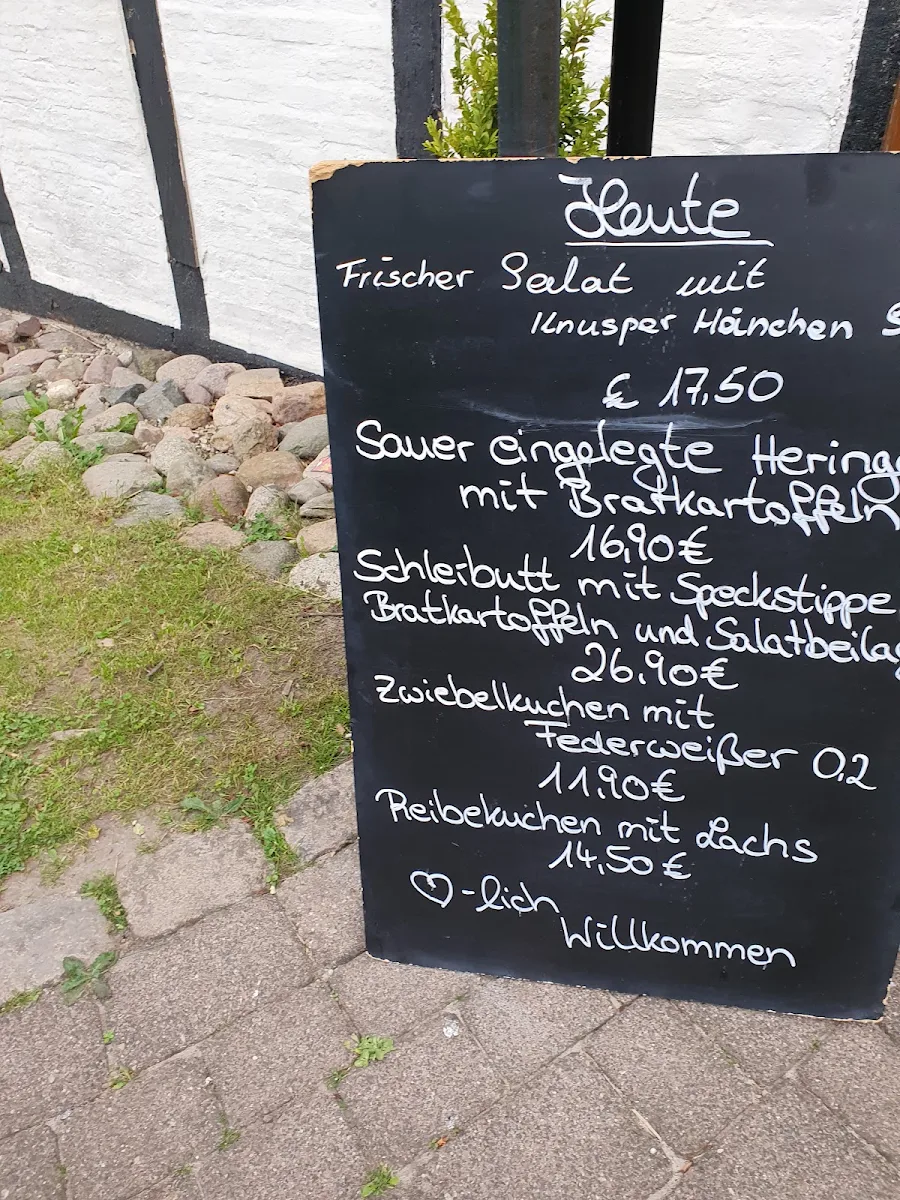 Heute
Frischer Salat mit
Knusper Hänchen S
€ 17,50
Sauer eingelegte Hering
mit Bratkartoffeln
16,90€
Schleibutt mit Speckstippe
Bratkartoffeln und Salatbeilag
26,90€
Zwiebelkuchen mit
Federweißer 0,2
11,90€
Reibekuchen mit Lachs
14,50€
♡-lich
Willkommen